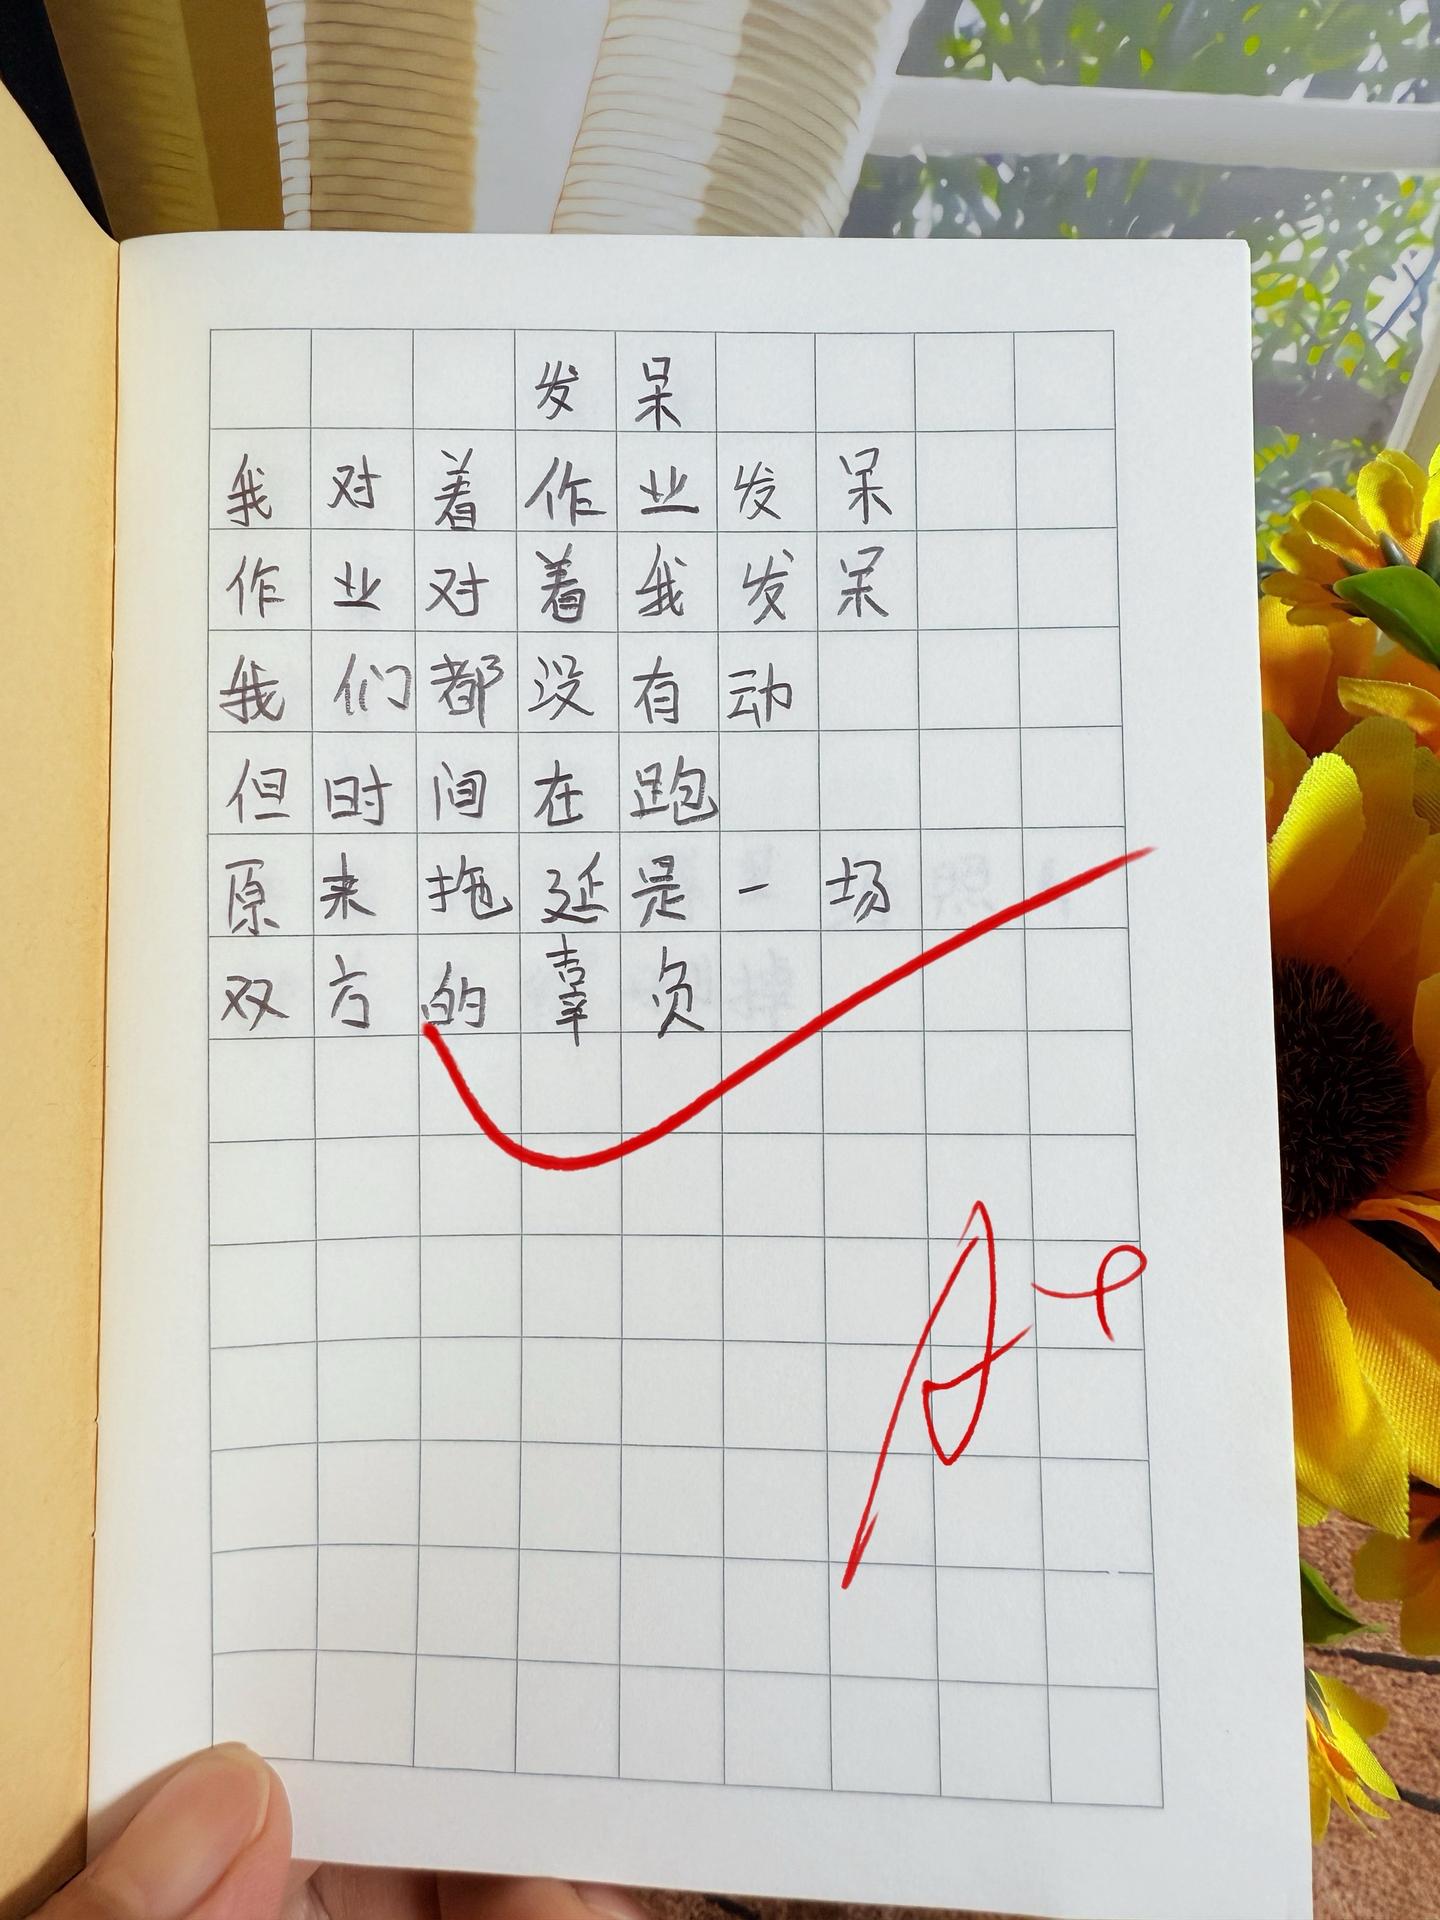 发呆
我对着作业发呆
作业对着我发呆
我们都没有动
但时间在跑
原来拖延是一场
双方的辜负
A+